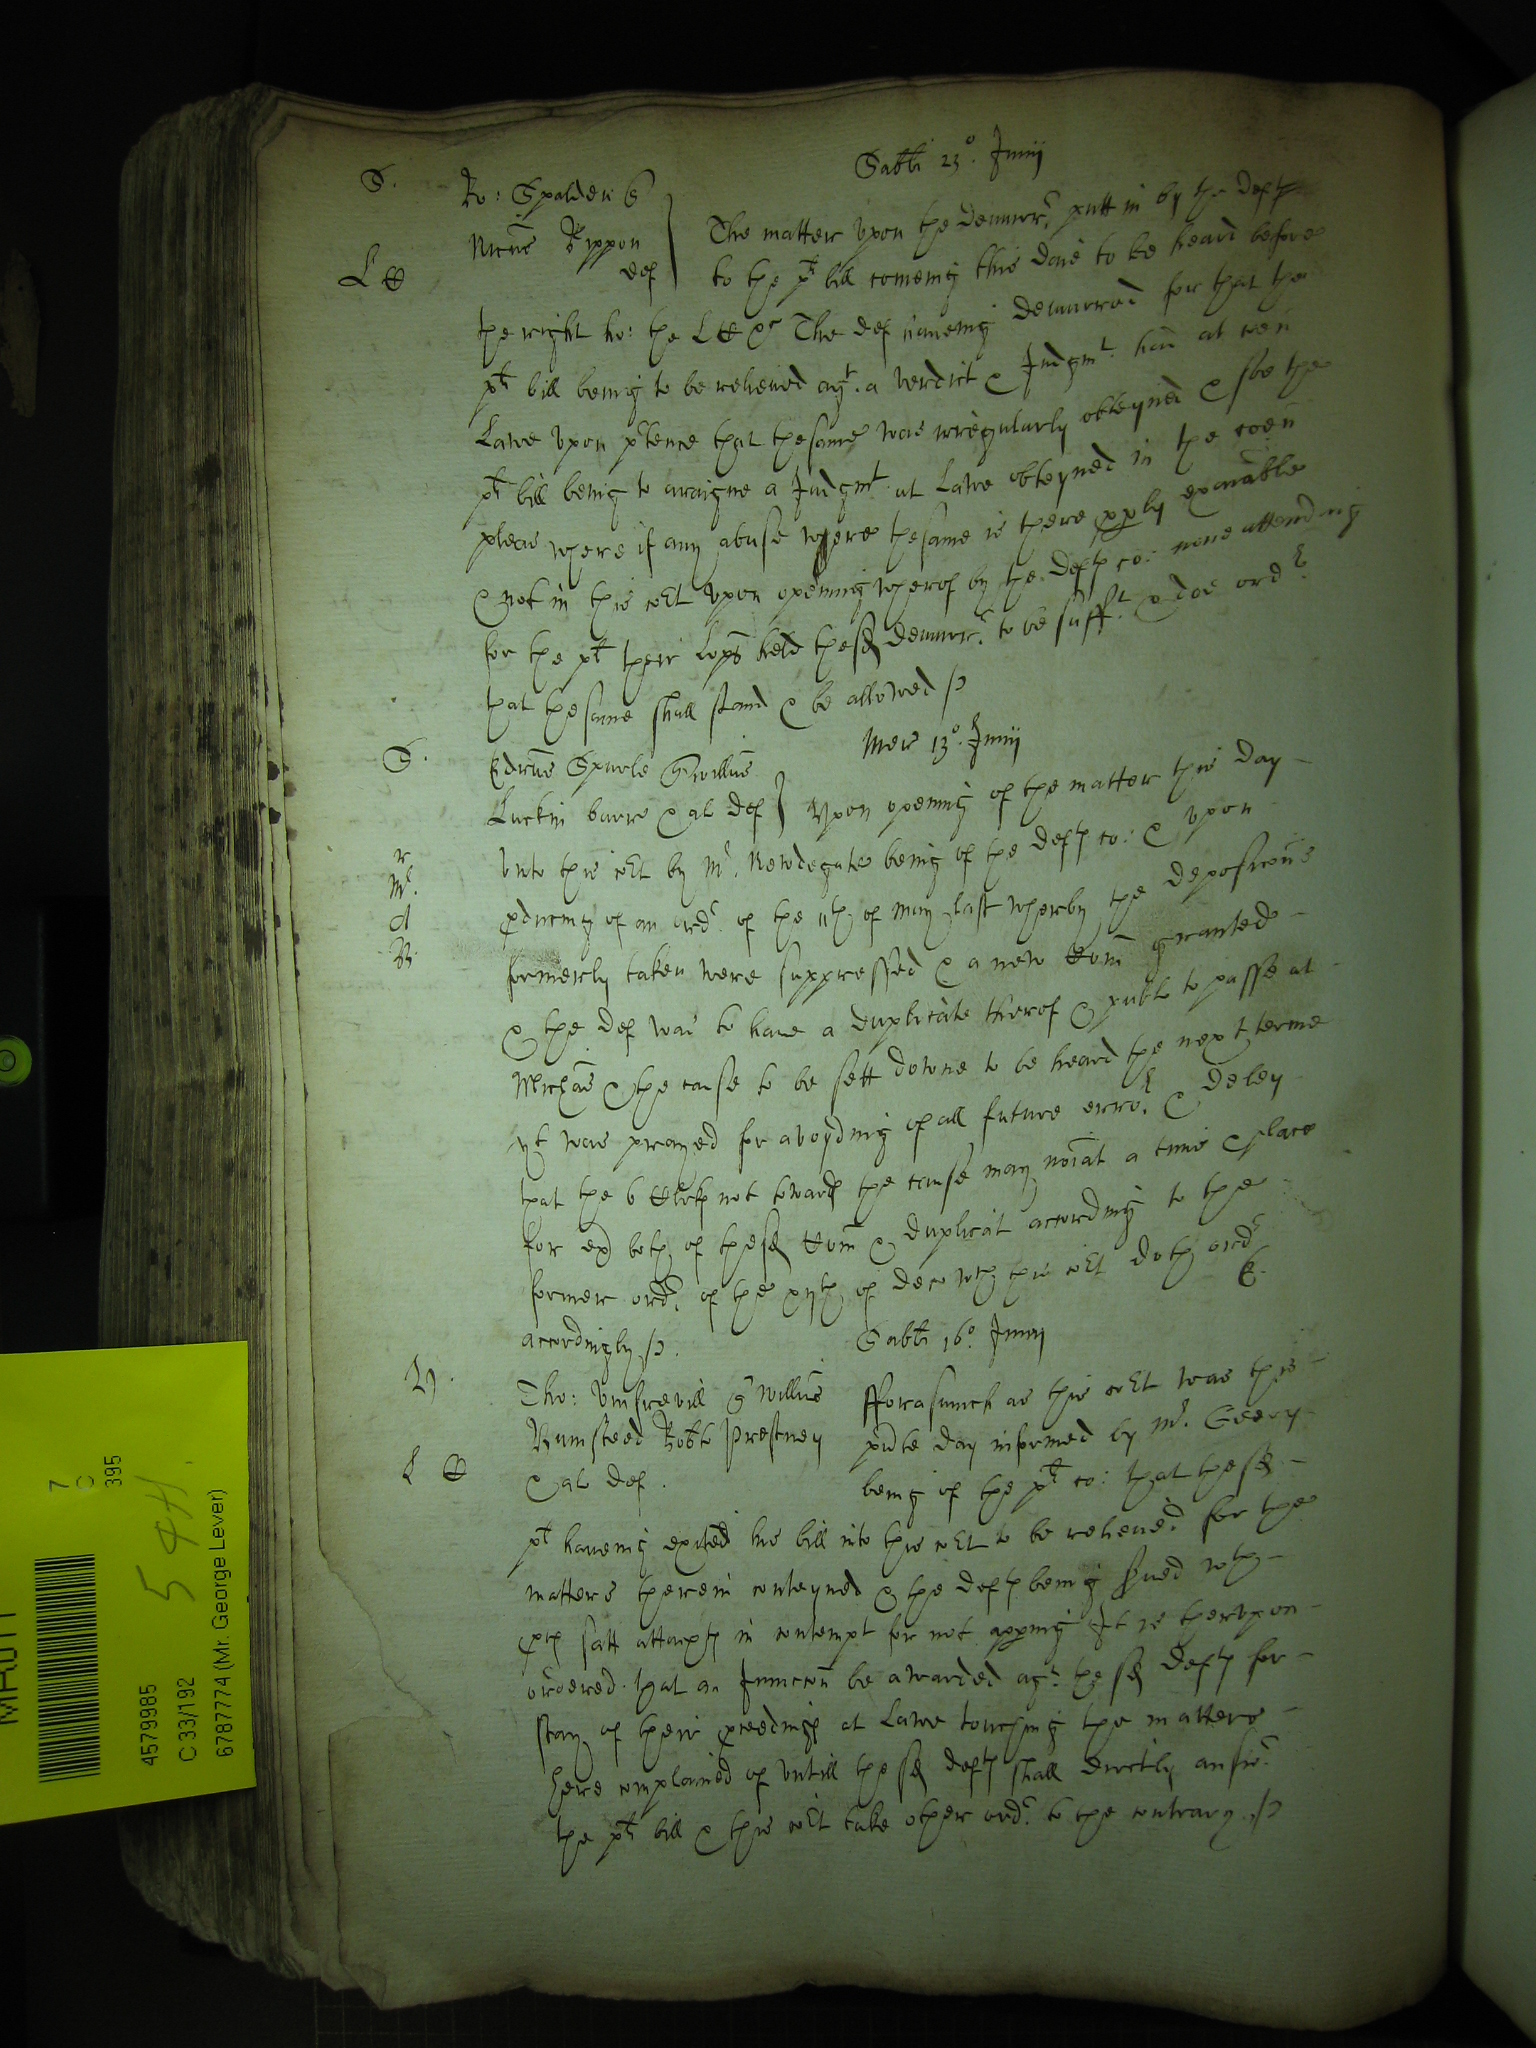 Sabbti 23o. Junij
S.
Ro: Spalden q
Nicus Kippon
def
The matter vpon the demurr putt in by the defts
LCC
to the plts bill comeing this daie to be heard before
the right ho: the LCC &c The def haueing demurred for that the
plts bill being to be relieued agt. a verdict & Judgmt. had at coen
Lawe vpon ptence that the same was irregularly obteyned & soe the
plts bill being to araigne a Judgmt at Lawe obteyned in the coen
pleas where if any abuse were the same is there pply exaiable
& not in this cort vpon opening wherof by the defts co: none attending
for the plt their Lopps held the sd demurr to be sufft. & doe ordr
that the same shall stand & be allowed
Mer 13o. Junij
S.
Edrus Spurle q willus
Luckin barr & al def
Vpon opening of the matter this day
vnto this cort by Mr. Newdegate being of the defts co: & vpon
r
Mr.
d
pduceing of an ordr. of the 11th of May last wherby the deposicons
R
formerly taken were suppressed & a new Com granted
& the def was to haue a duplicate therof & publ to passe at
Michas & the cause to be sett downe to be heard the next terme
yt was prayed for avoyding of all future errors & deley
that the 6 Clerks not towards the cause may noiat a time & place
for exd both of the sd Com & duplicat according to the
former ordr. of the xijth of dec wth this cort doth ordr
E.
accordingly
Sabbti 16o Junij
V.
Tho: Vmfrevill q Willus
Bumsteed Robto Prestney
& als def.
LCC
fforasmuch as this cort was this
pnte day informed by Mr. Geery
being of the plts co: that the sd
plt haueing exited his bill into this cort to be relieued for the
matters therein conteyned & the defts being serued wth
pces satt attachts in contempt for not apping It is therevpon
ordered that an Juncton be awarded agt. the sd defts for
stay of their pceedings at Lawe touching the matters
here complained of vntill the sd defts shall directly answr
the plts bill & this cort take other ordr. to the contrary
7
C
395
54H.
4579985
C 33/192
6787774 (Mr. George Lever)